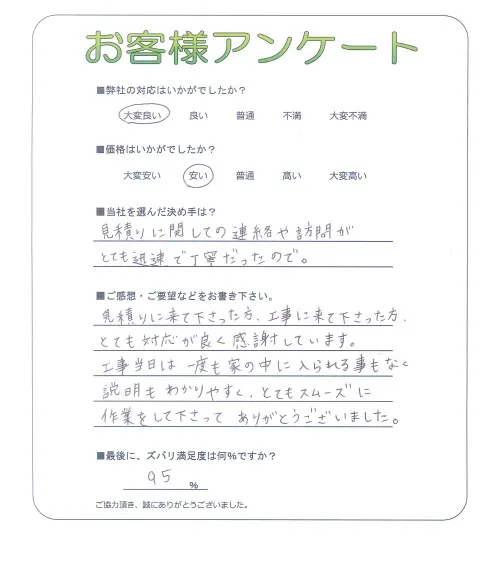 お客様アンケート
■弊社の対応はいかがでしたか?
大変良い 良い 普通 不満 大変不満
■価格はいかがでしたか?
大変安い 安い 普通 高い 大変高い
■当社を選んだ決め手は?
見積りに関しての連絡や訪問が
とても迅速で丁寧だったので。
■ご感想・ご要望などをお書き下さい。
見積りに来て下さった方、工事に来て下さった方、
とても対応が良く感謝しています。
工事当日は一度も家の中に入られる事もなく
説明もわかりやすく、とてもスムーズに
作業をして下さって ありがとうございました。
■最後に、ズバリ満足度は何%ですか?
95 %
ご協力頂き、誠にありがとうございました。